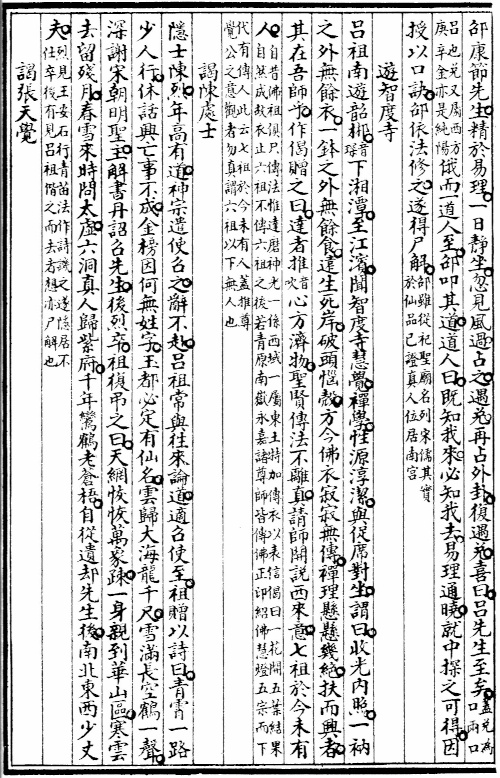 邵康節先生精於易理一日靜坐忽見風過占之遇兌再占外卦復遇兌喜曰呂先生至矣蓋兌為口兩口
呂也兌又屬西方庚辛金亦是純陽俄而一道人至邵叩其道道人曰既知我來必知我去易理通曉就中探之可得因
授以口訣邵依法修之遂得尸解邵雖從祀聖廟名列宋儒其實於仙品已證真人位居南宮
遊智度寺
呂祖南遊韶郴音琛下湘潭至江濱聞智度寺慧覺禪學性源淳潔與從席對坐謂曰收光內照一衲
之外無餘衣一鉢之外無餘食達生死岸破頭惱殼方今佛衣寂寂無傳禪理懸懸幾絕扶而興者
其在吾師乎作偈贈之曰達者推音吹心方濟物聖賢傳法不離真請師開說西來意七祖於今未有
人自昔佛祖俱只傳法惟達磨神光一係西域一屬東土特加傳衣以表信偈曰一花開五葉結果自然成故衣止六祖不傳六祖之後若青原南嶽永嘉諸尊師皆傳佛正印紹佛慧燈五宗而下
代有傳人此云七祖於今未有人蓋推尊覺公之意觀者勿真謂六祖以下無人也
謁陳處士
隱士陳烈年高有道神宗遣使召之辭不赴呂祖常與往來論道適召使至祖贈以詩曰青霄一路
少人行休話興亡事不成金榜因何無姓字玉都必定有仙名雲歸大海龍千尺雪滿長空鶴一聲
深謝宋朝明聖主解書丹詔召先生後烈卒祖復弔之曰天網恢恢萬象疎一身親到華山區寒雲
去留殘月春雪來時問太虛六洞真人歸紫府千年鸞鶴老蒼梧自從遺却先生後南北東西少丈
夫烈見王安石行青苗法作詩譏之遂隱居不仕卒後有見呂祖偕之而去者想亦尸解也
謁張天覺